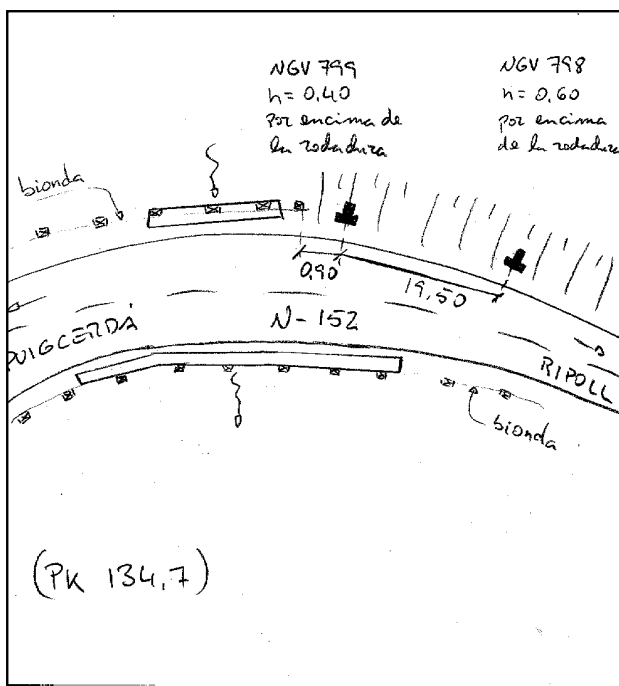 NGV 799
h = 0,40
por encima de
la rodadura
NGV 798
h = 0,60
por encima
de la rodadura
bionda
0,90
19,50
PUIGCERDÁ
N-152
RIPOLL
bionda
(PK 134,7)